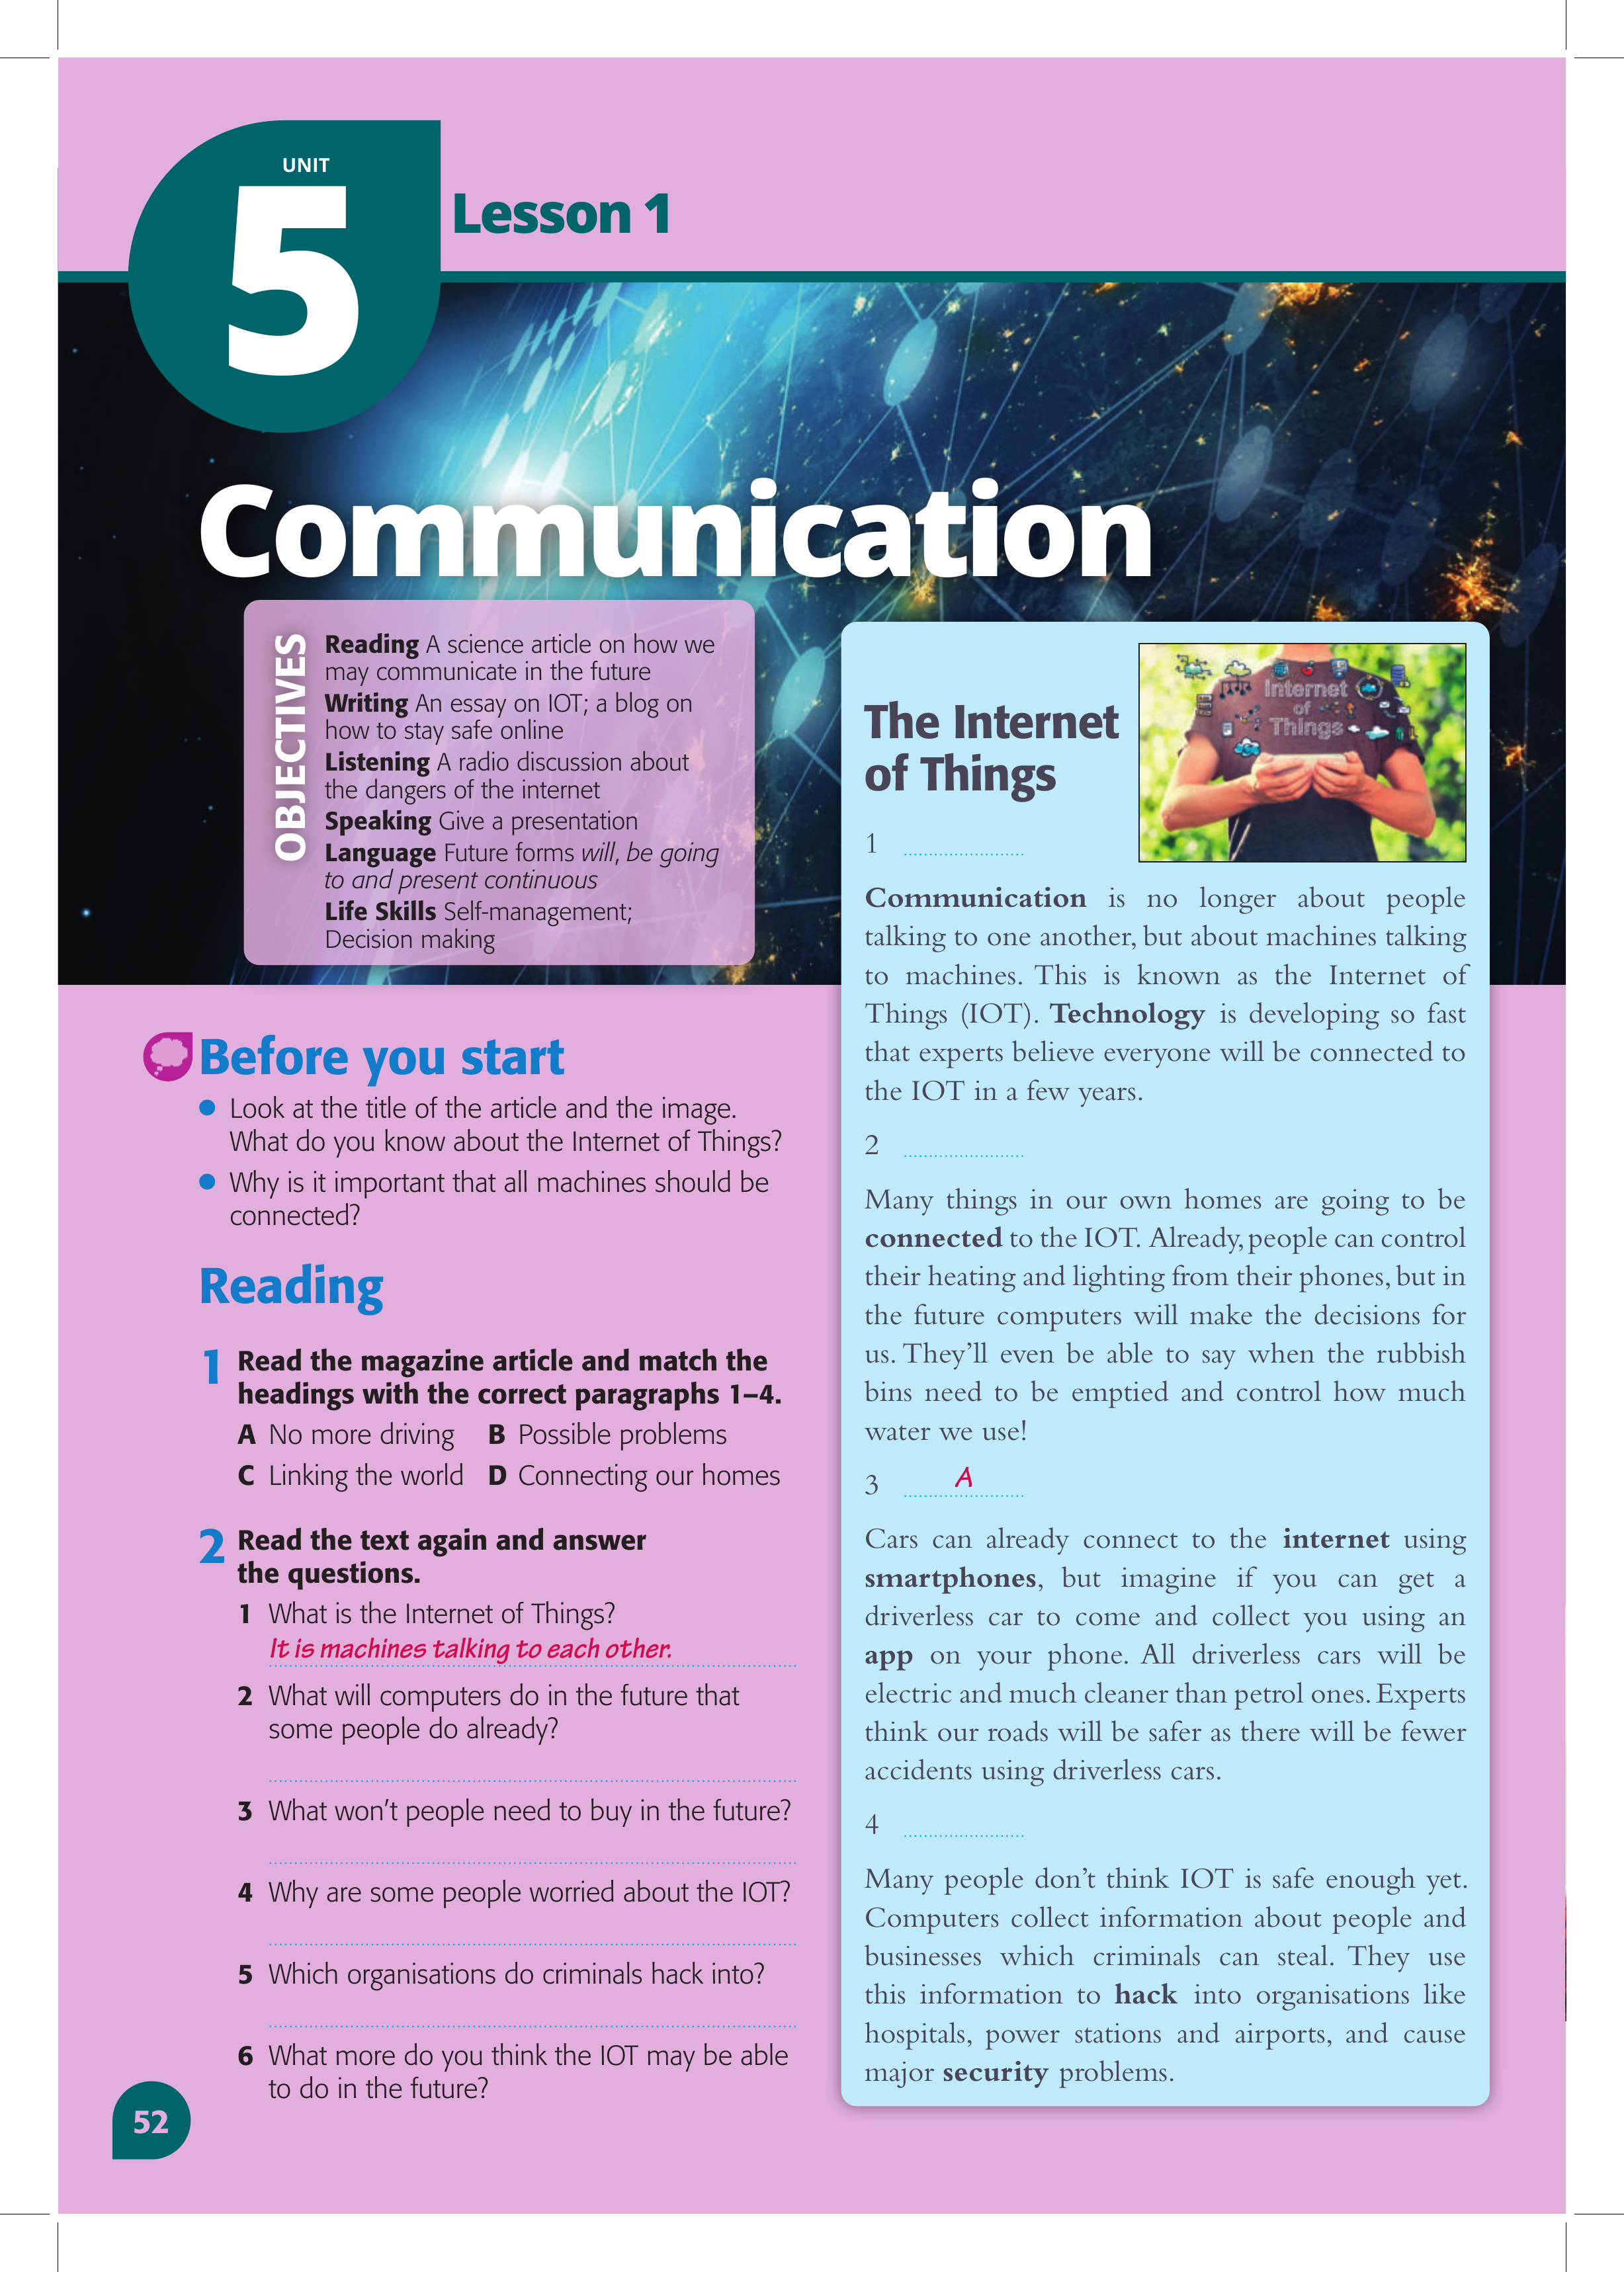 UNIT
5
Lesson 1
Communication
OBJECTIVES
Reading A science article on how we
may communicate in the future
Writing An essay on IOT; a blog on
how to stay safe online
Listening A radio discussion about
the dangers of the internet
Speaking Give a presentation
Language Future forms will, be going
to and present continuous
Life Skills Self-management;
Decision making
Before you start
● Look at the title of the article and the image.
What do you know about the Internet of Things?
● Why is it important that all machines should be
connected?
Reading
1 Read the magazine article and match the
headings with the correct paragraphs 1–4.
A No more driving B Possible problems
C Linking the world D Connecting our homes
2 Read the text again and answer
the questions.
1 What is the Internet of Things?
It is machines talking to each other.
2 What will computers do in the future that
some people do already?
3 What won't people need to buy in the future?
4 Why are some people worried about the IOT?
5 Which organisations do criminals hack into?
6 What more do you think the IOT may be able
to do in the future?
52
The Internet
of Things
Internet
of
Things
1
Communication is no longer about people
talking to one another, but about machines talking
to machines. This is known as the Internet of
Things (IOT). Technology is developing so fast
that experts believe everyone will be connected to
the IOT in a few years.
2
Many things in our own homes are going to be
connected to the IOT. Already, people can control
their heating and lighting from their phones, but in
the future computers will make the decisions for
us. They'll even be able to say when the rubbish
bins need to be emptied and control how much
water we use!
3 A
Cars can already connect to the internet using
smartphones, but imagine if you can get a
driverless car to come and collect you using an
app on your phone. All driverless cars will be
electric and much cleaner than petrol ones. Experts
think our roads will be safer as there will be fewer
accidents using driverless cars.
4
Many people don't think IOT is safe enough yet.
Computers collect information about people and
businesses which criminals can steal. They use
this information to hack into organisations like
hospitals, power stations and airports, and cause
major security problems.